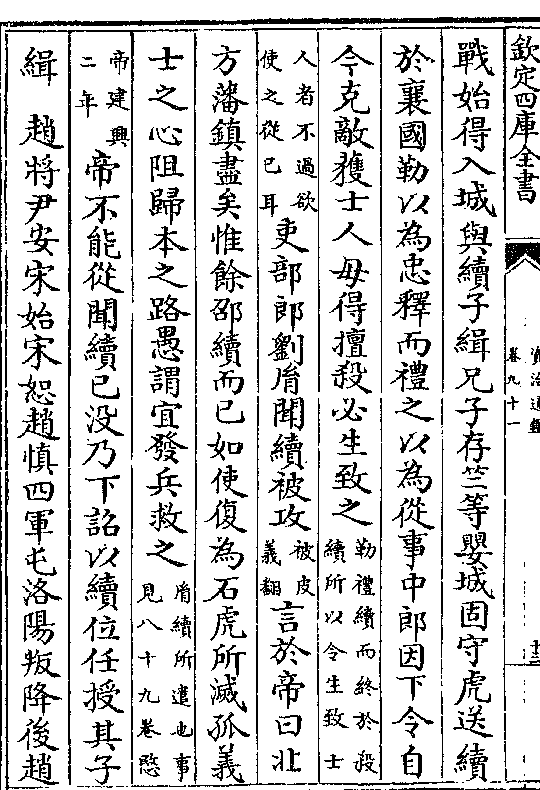 欽定四庫全書
資治通鑑
卷九十一
戰始得入城與續子緝兄子存竺等嬰城固守虎送續
於襄國勒以為忠釋而禮之以為從事中郎因下令自
今克敵獲士人毋得擅殺必生致之勒禮續而終於殺續所以令生致士
人者不過欲使之從已耳吏部郎劉胤聞續被攻被皮義翻言於帝曰北
方藩鎮盡矣惟餘邵續而已如使復為石虎所滅孤義
士之心阻歸本之路愚謂宜發兵救之胤續所遣也事見八十九卷愍
帝建興二年帝不能從聞續已没乃下詔以續位任授其子
緝 趙將尹安宋始宋恕趙慎四軍屯洛陽叛降後趙